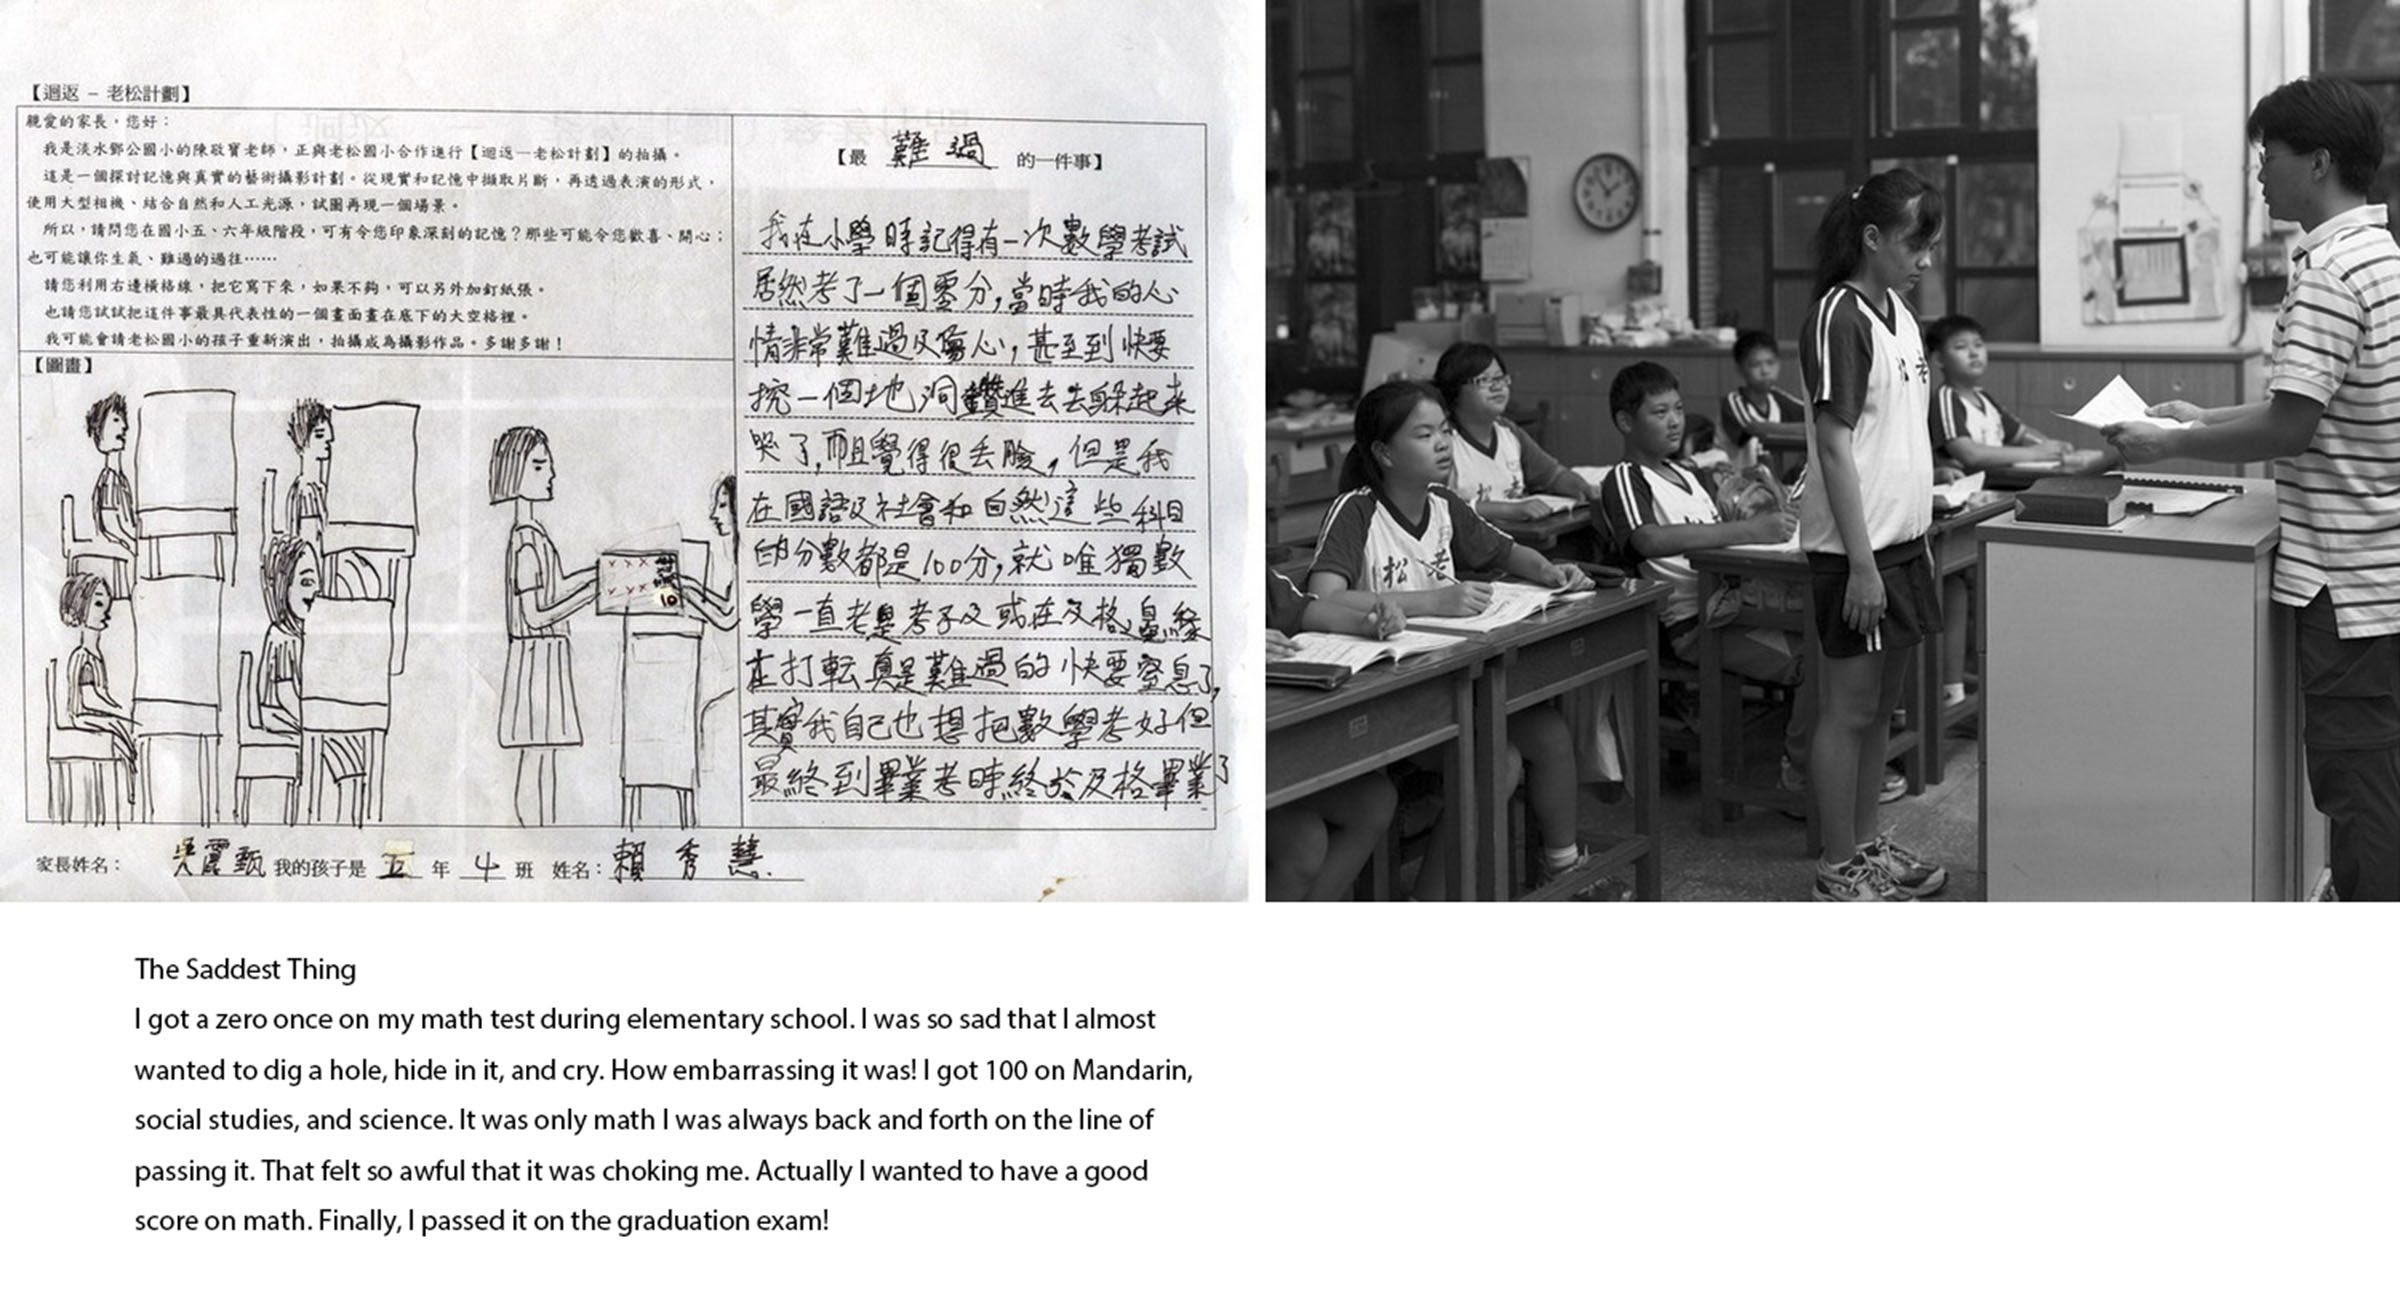 【迴返 – 老松計劃】
親愛的家長，您好：
我是淡水鄧公國小的陳敬寶老師，正與老松國小合作進行【迴返—老松計劃】的拍攝。
這是一個探討記憶與真實的藝術攝影計劃。從現實和記憶中擷取片斷，再透過表演的形式，
使用大型相機、結合自然和人工光源，試圖再現一個場景。
所以，請問您在國小五、六年級階段，可有令您印象深刻的記憶？那些可能令您歡喜、開心；
也可能讓你生氣、難過的過往……
請您利用右邊橫格線，把它寫下來，如果不夠，可以另外加釘紙張。
也請您試試把這件事最具代表性的一個畫面畫在底下的大空格裡。
我可能會請老松國小的孩子重新演出，拍攝成為攝影作品。多謝多謝！
【圖畫】
10
【最 難過 的一件事】
我在小學時記得有一次數學考試
居然考了一個零分,當時我的心
情非常難過及傷心,甚至到快要
挖一個地洞鑽進去去躲起來
哭了,而且覺得很丟臉,但是我
在國語及社會和自然這些科目
的分數都是100分,就唯獨數
學一直老是考不及或在及格邊緣
在打転真是難過的快要窒息了,
其實我自己也想把數學考好但
最終到畢業考時終於及格畢業了
家長姓名： 吳震甄 我的孩子是 五 年 4 班 姓名：賴秀慧.
老松
The Saddest Thing
I got a zero once on my math test during elementary school. I was so sad that I almost
wanted to dig a hole, hide in it, and cry. How embarrassing it was! I got 100 on Mandarin,
social studies, and science. It was only math I was always back and forth on the line of
passing it. That felt so awful that it was choking me. Actually I wanted to have a good
score on math. Finally, I passed it on the graduation exam!